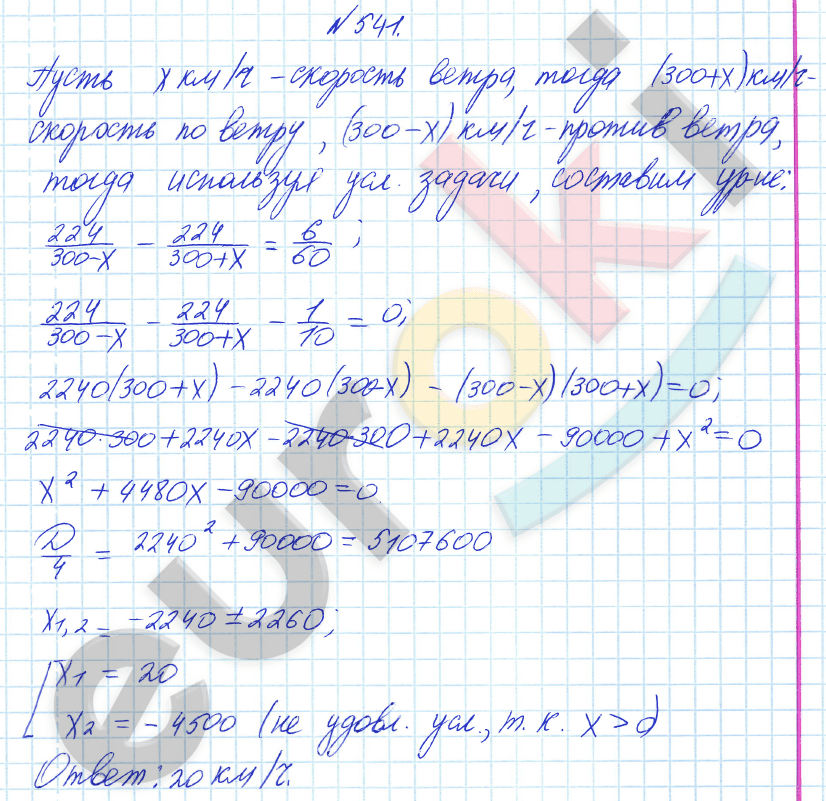 №541.
Пусть x км/ч – скорость ветра, тогда (300+x) км/ч –
скорость по ветру, (300–x) км/ч – против ветра,
тогда используя усл. задачи, составим ур-ие:
224/(300–x) – 224/(300+x) = 6/60;
224/(300–x) – 224/(300+x) – 1/10 = 0;
2240(300+x) – 2240(300–x) – (300–x)(300+x)=0;
2240·300 + 2240x – 2240·300 + 2240x – 90000 + x² = 0
x² + 4480x – 90000 = 0
D/4 = 2240² + 90000 = 5107600
x1,2 = –2240 ± 2260;
[ x1 = 20
x2 = – 4500 (не удовл. усл., т.к. x > 0)
Ответ: 20 км/ч.
euroki